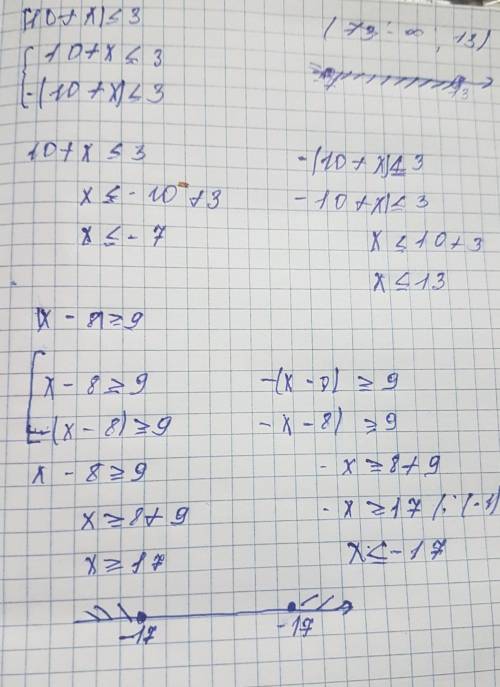 |10+x|≤3
10+x≤3
-(10+x)≤3
13
10+x≤3
x≤-10+3
x≤-7
-(10+x)≤3
-10+x)≤3
x≤10+3
x≤13
|x-8|≥9
x-8≥9
-(x-8)≥9
x-8≥9
x≥8+9
x≥17
-(x-8)≥9
-x-8)≥9
-x≥8+9
-x≥17 /:(-1)
x≤-17
-17 -17